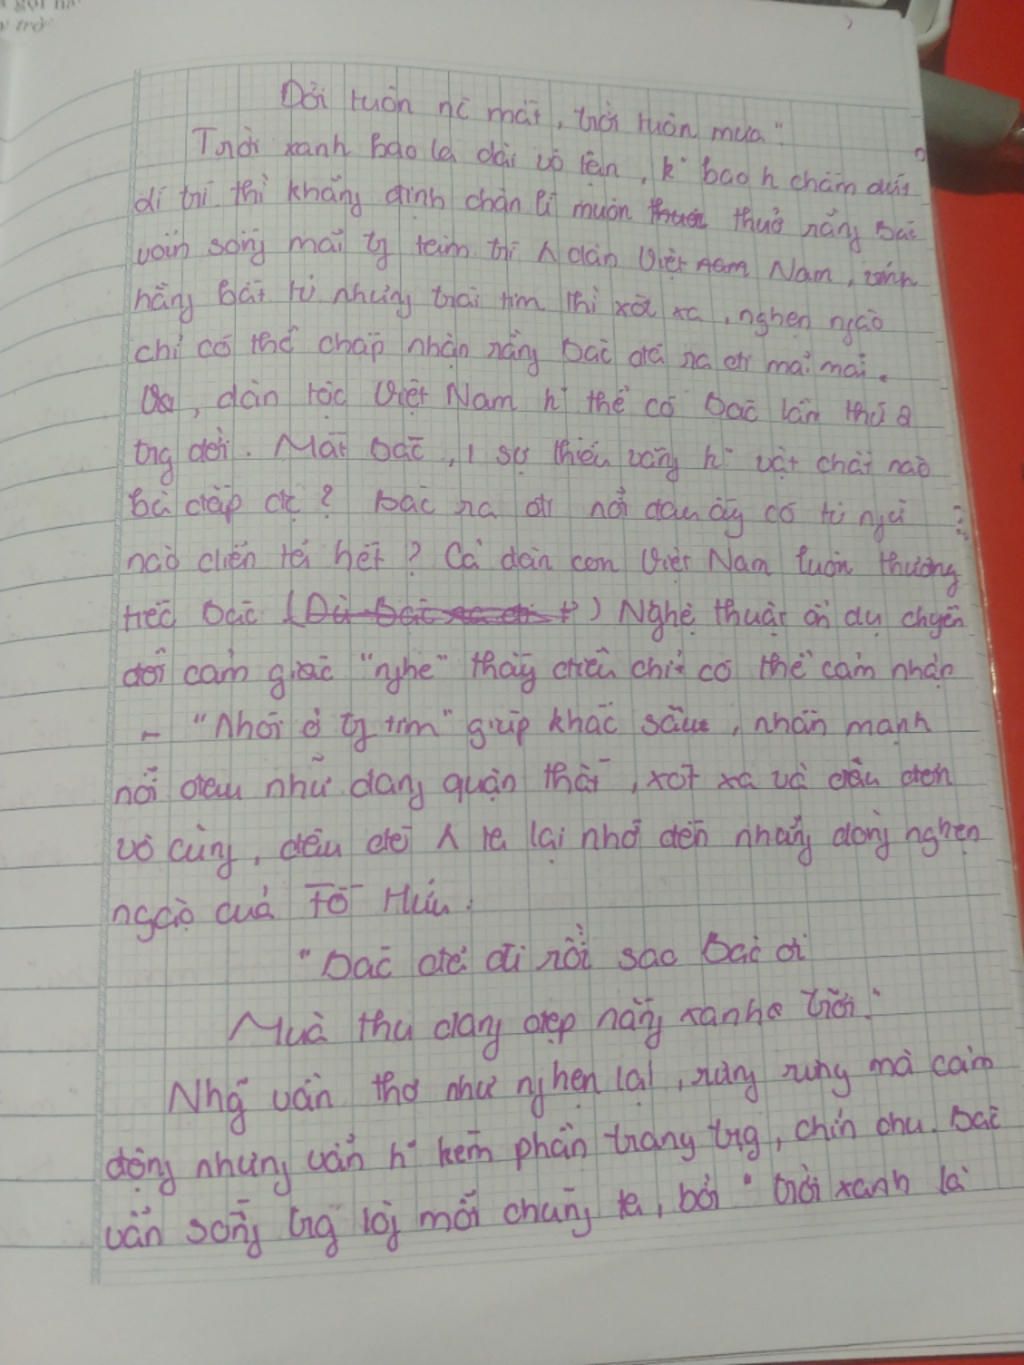 Đời tuôn nc mắt, trời tuôn mưa"
Trời xanh bao la dài vô tận, k bao h chấm dứt
dí trí thì khẳng định chân lí muôn thuở rằng Bác
vẫn sống mãi tg tâm trí ^ dân Việt Nam, vĩnh
hằng bất tử nhưng trái tim thì xót xa, nghẹn ngào
chỉ có thể chấp nhận rằng Bác đã ra đi mãi mãi.
dân tộc Việt Nam h thể có Bác lần thứ 2
trg đời. Mất Bác, 1 sự thiếu vắng h vật chất nào
bù đắp đc? Bác ra đi nỗi đau ấy có từ ngữ
nào diễn tả hết? Cả dân con Việt Nam luôn thương
tiếc Bác Nghệ thuật ẩn dụ chyển
đổi cảm giác "nghe" thấy điều chỉ có thể cảm nhận
- "Nhói ở tg tim" giúp khắc sâu, nhấn mạnh
nỗi đau như đang quặn thắt, xót xa và đau đớn
vô cùng, điều đó ^ ta lại nhớ đến những dòng nghẹn
ngào của Tố Hữu.
"Bác đã đi rồi sao Bác ơi
Mùa thu đang đẹp nắng xanh trời."
Nhg vần thơ như nghẹn lại, rưng rưng mà cảm
động nhưng vẫn h kém phần trang trg, chỉn chu. Bác
vẫn sống trg lòg mỗi chúng ta, bởi "trời xanh là